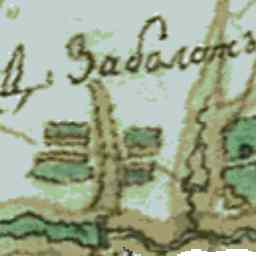 Д. Заболотъ